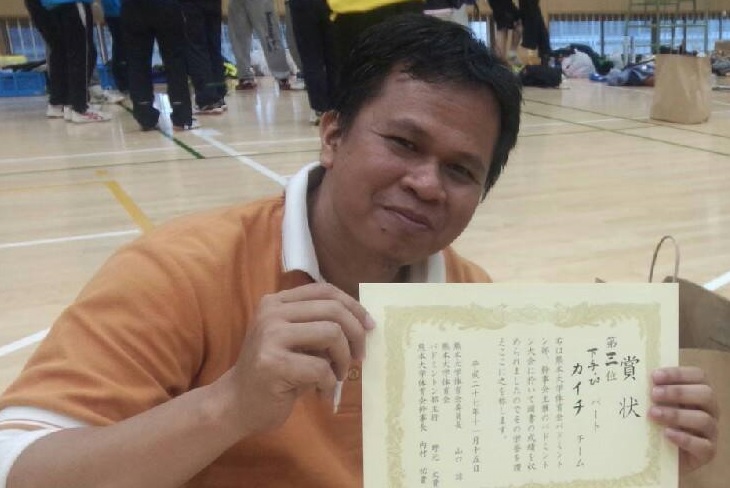 賞状
第三位
下手っぴ パート
カイチ チーム
右は熊本大学体育会バドミント
ン部、幹事会主催のバドミント
ン大会に於いて頭書の成績を収
められましたのでその栄誉を讃
えここに之を称します。
平成二十七年十一月十五日
熊本大学体育会委員長 山口
熊本大学体育会
バドミントン部主将 野元
熊本大学体育会幹事長 内村